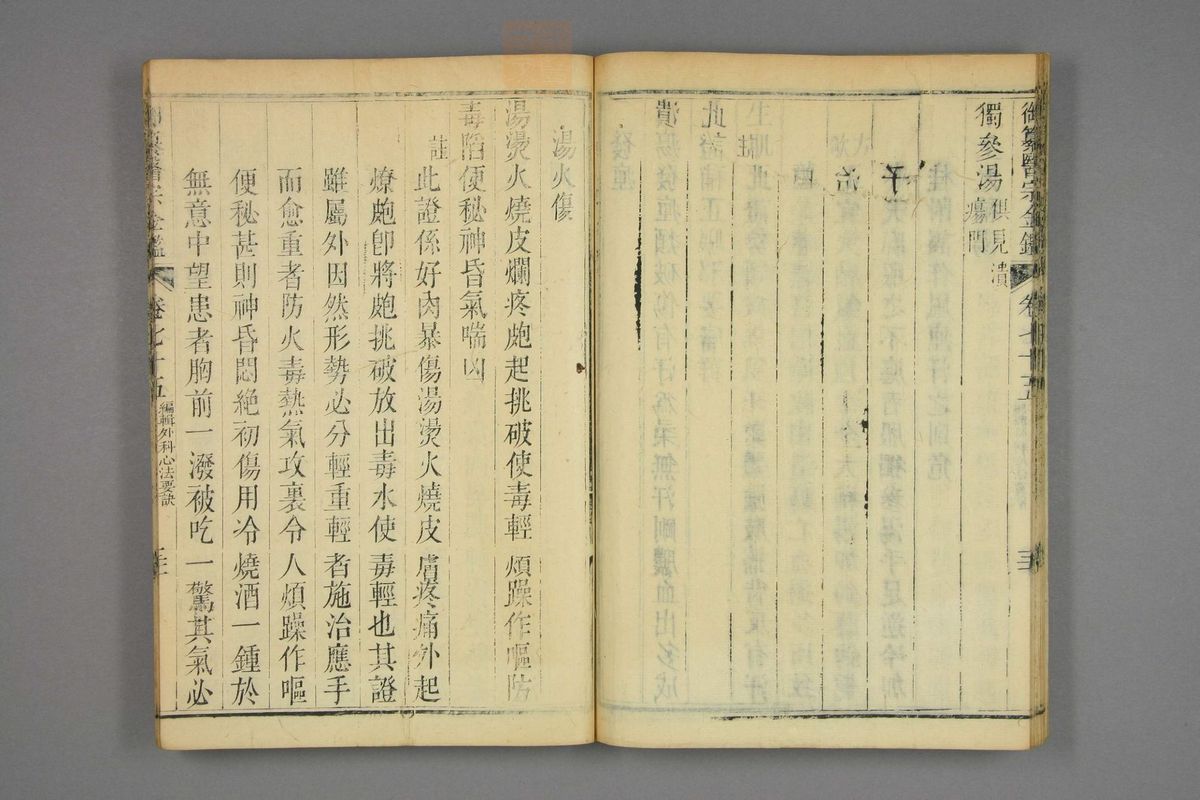 御纂醫宗金鑑
卷七十五
獨參湯俱見潰瘍門
湯火傷
湯燙火燒皮爛疼皰起挑破使毒輕煩躁作嘔防
毒陷便秘神昏氣喘凶
註
此證係好肉暴傷湯燙火燒皮膚疼痛外起
燎皰即將皰挑破放出毒水使毒輕也其證
雖屬外因然形勢必分輕重輕者施治應手
而愈重者防火毒熱氣攻裏令人煩躁作嘔
便秘甚則神昏悶絕初傷用冷燒酒一鍾於
無意中望患者胸前一潑被吃一驚其氣必
御纂醫宗金鑑
卷七十五
編輯外科心法要訣